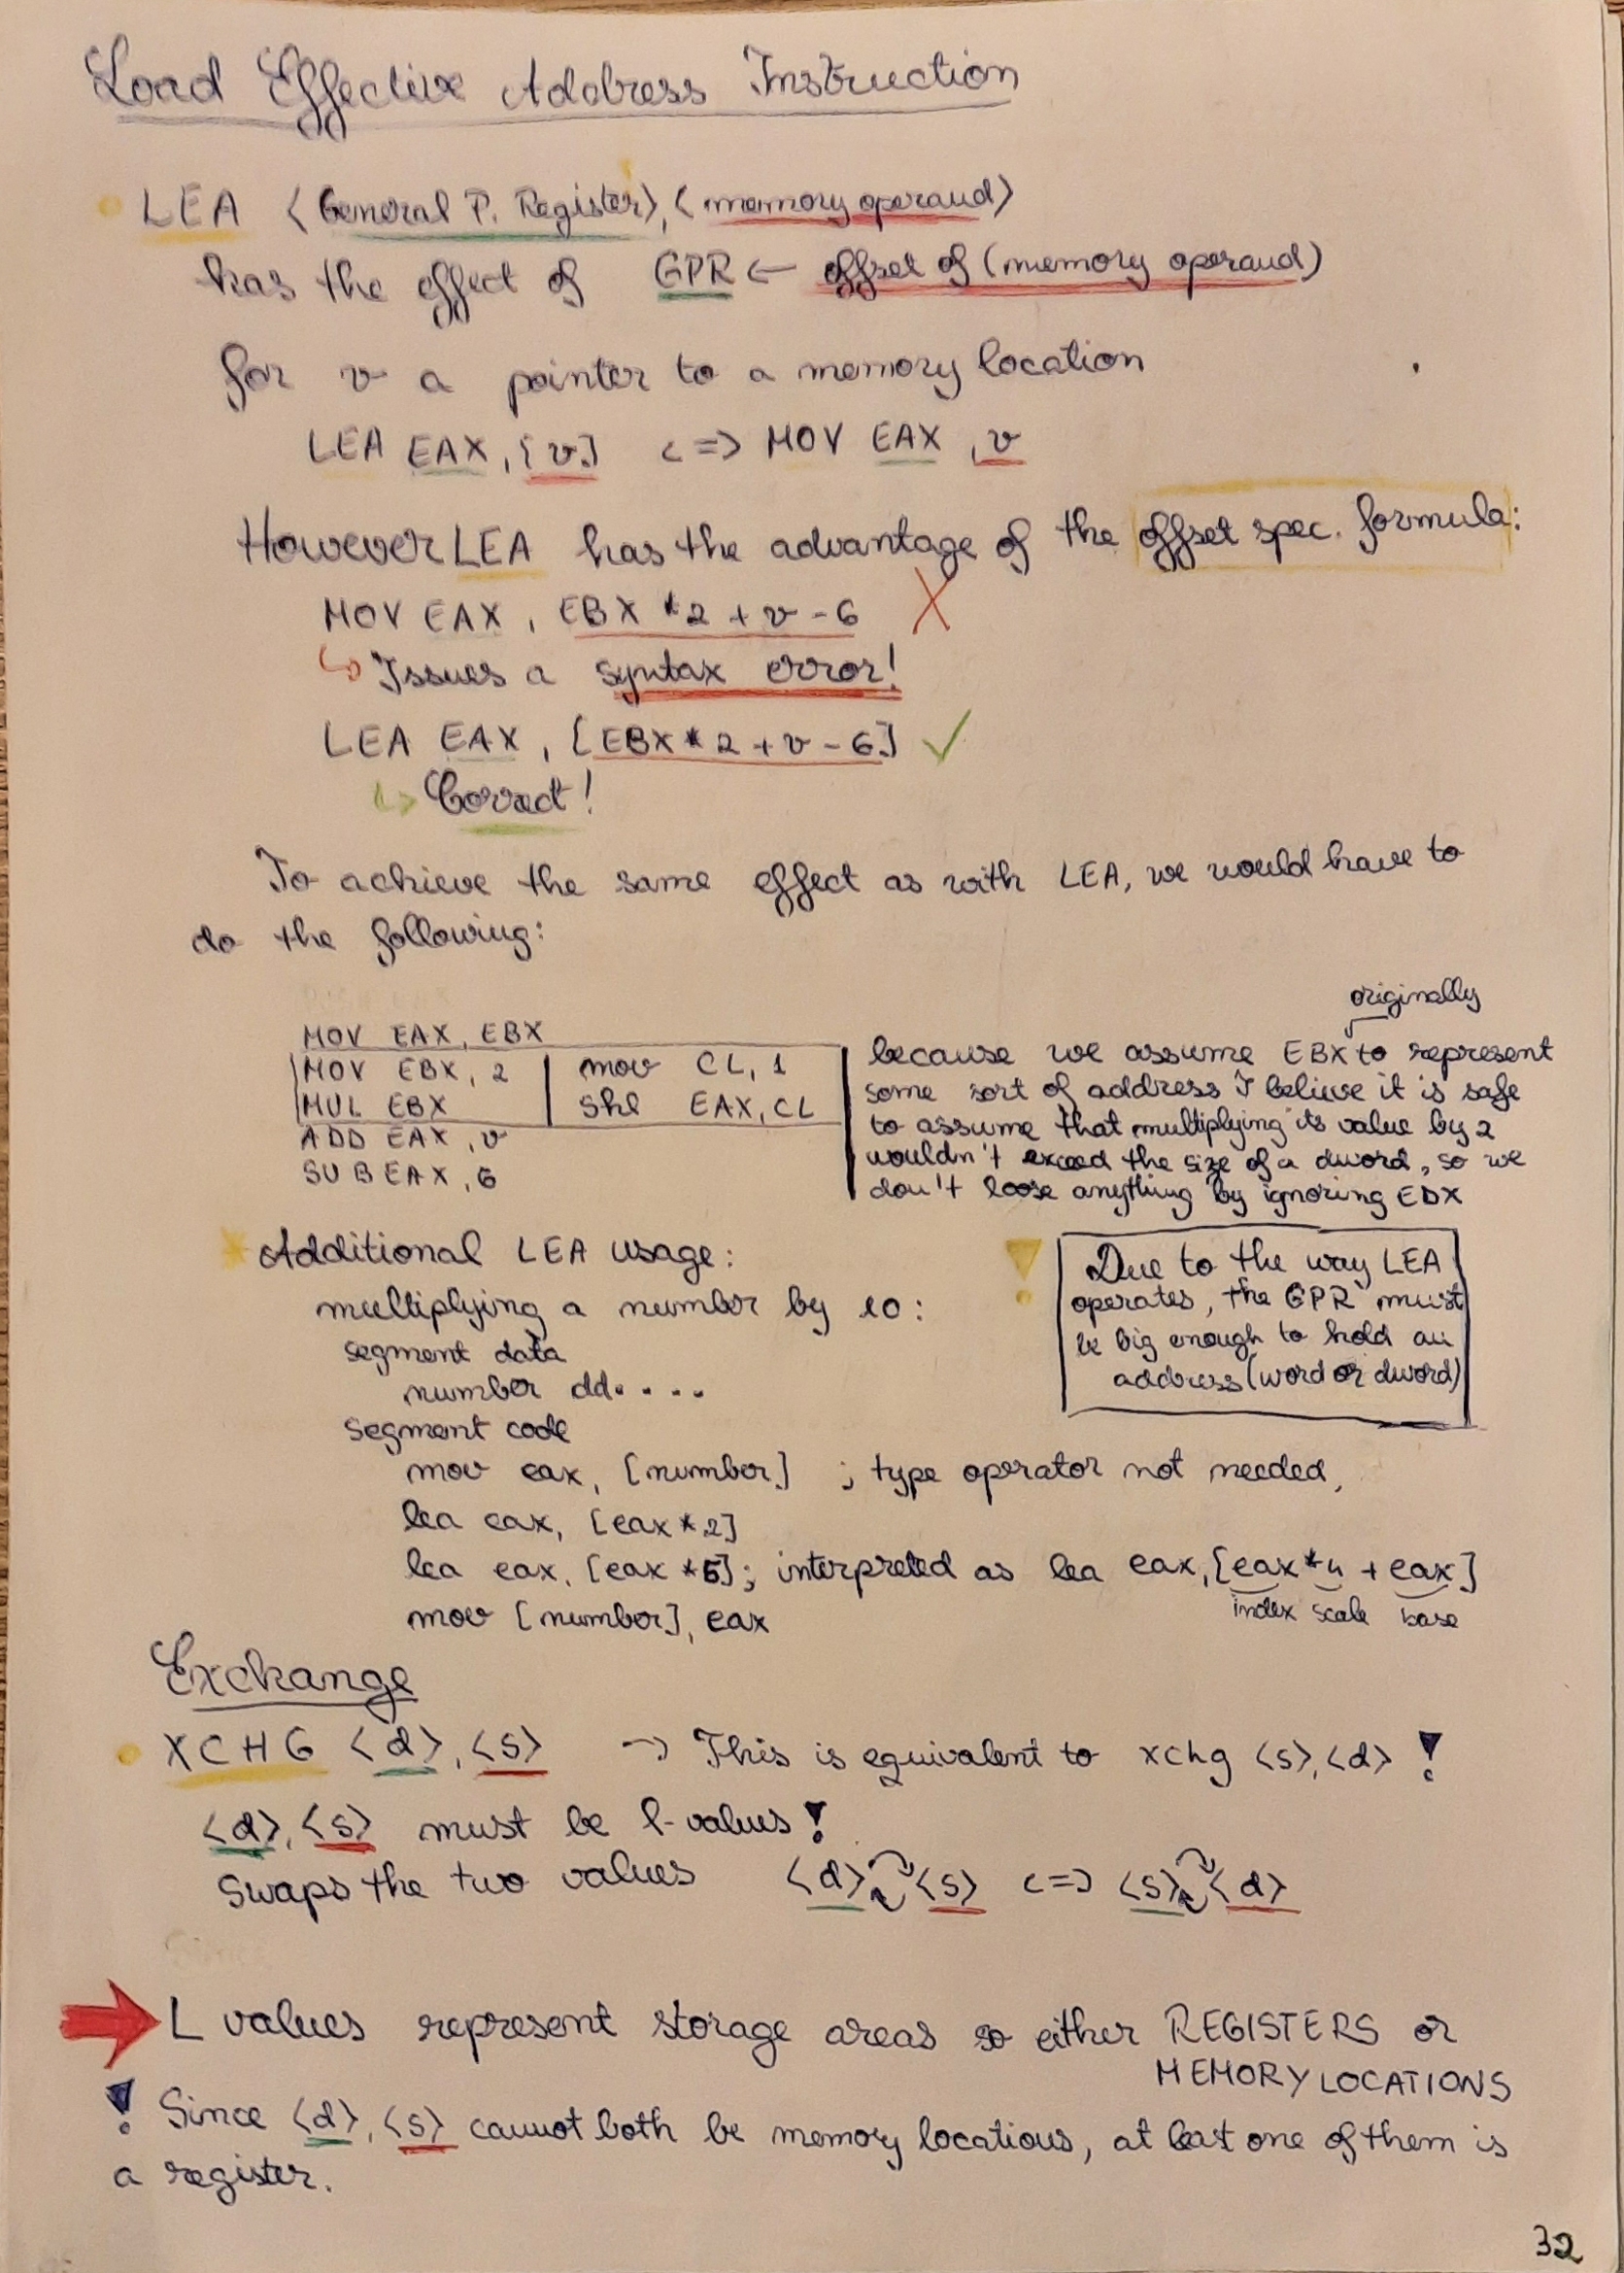 Load Effective Address Instruction
LEA <General P. Register>, <memory operand>
has the effect of GPR ← offset of (memory operand)
for v a pointer to a memory location
LEA EAX, [v] <=> MOV EAX, v
However LEA has the advantage of the offset spec. formula:
MOV EAX, EBX *2 + v - 6 X
↳ Issues a syntax error!
LEA EAX, [EBX * 2 + v - 6] ✓
↳ Correct!
To achieve the same effect as with LEA, we would have to
do the following:
MOV EAX, EBX
MOV EBX, 2 | mov CL, 1
MUL EBX | shl EAX, CL
ADD EAX, v
SUB EAX, 6
originally
because we assume EBX to represent
some sort of address I believe it is safe
to assume that multiplying its value by 2
wouldn't exceed the size of a dword, so we
don't loose anything by ignoring EDX
* Additional LEA usage:
multiplying a number by 10:
segment data
number dd. . . .
segment code
mov eax, [number] ; type operator not needed,
lea eax, [eax * 2]
lea eax, [eax *5]; interpreted as lea eax, [eax*4 + eax]
index scale base
mov [number], eax
! Due to the way LEA
operates, the GPR must
be big enough to hold an
address (word or dword)
Exchange
XCHG <d>, <s> → This is equivalent to xchg <s>, <d> !
<d>, <s> must be l-values !
Swaps the two values <d> <s> <=> <s> <d>
L values represent storage areas so either REGISTERS or
MEMORY LOCATIONS
! Since <d>, <s> cannot both be memory locations, at least one of them is
a register.
32